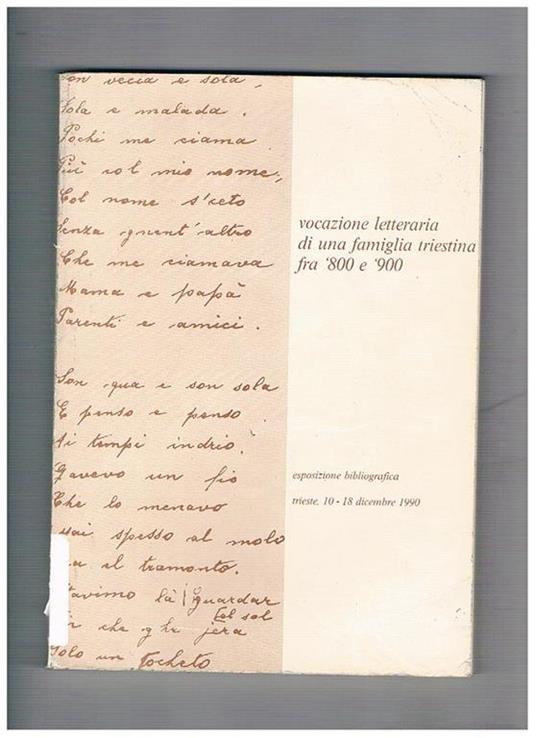 Son vecia e sola,
Sola e malada.
Pochi me ciama
Più col mio nome,
Col nome s'ceto
Senza gnent'altro
Che me ciamava
Mama e papà
Parenti e amici.
Son qua e son sola
E penso e penso
Ai tempi indrio.
Gavevo un fio
Che lo menavo
spesso al molo
el tramonto.
là guardar
che ghe jera
Col sol
Solo un tocheto
vocazione letteraria
di una famiglia triestina
fra '800 e '900
esposizione bibliografica
trieste, 10 - 18 dicembre 1990